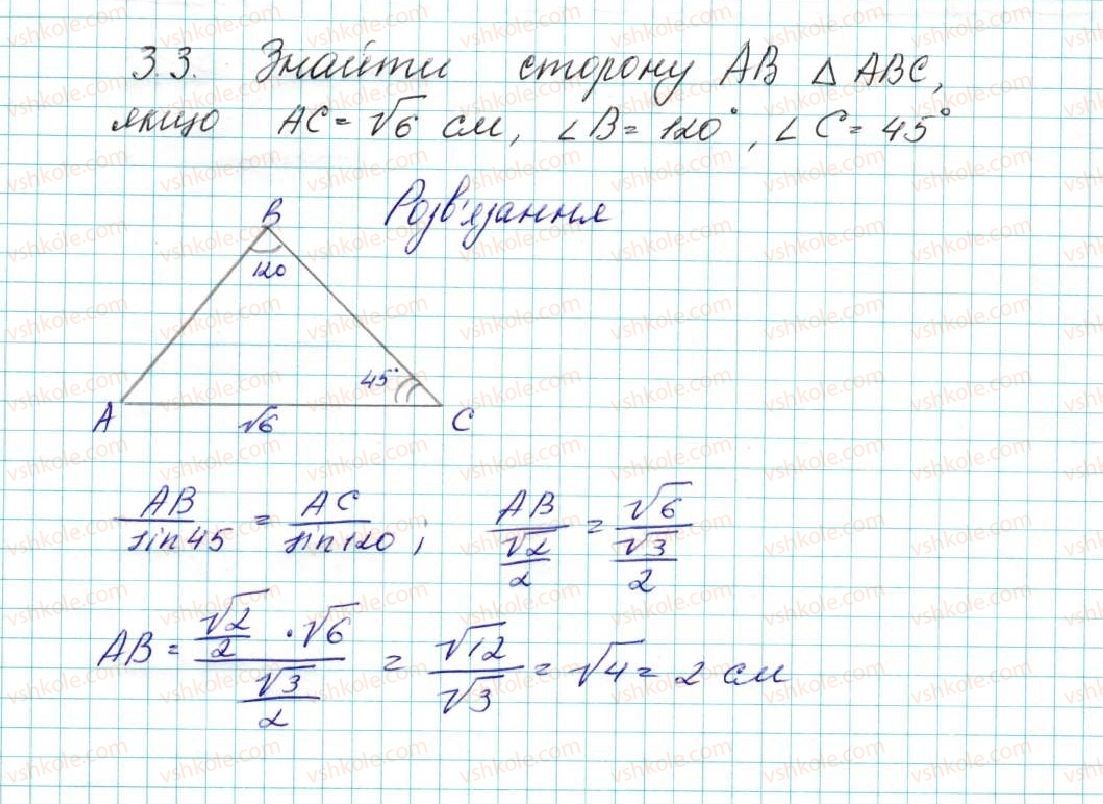 3.3. Знайти сторону AB △ ABC,
якщо AC = √6 см, ∠B = 120°, ∠C = 45°
Розв'язання
B
120
45°
A
√6
C
AB/sin45 = AC/sin120; AB/(√2/2) = √6/(√3/2)
AB = (√2/2 · √6)/(√3/2) = √12/√3 = √4 = 2 см